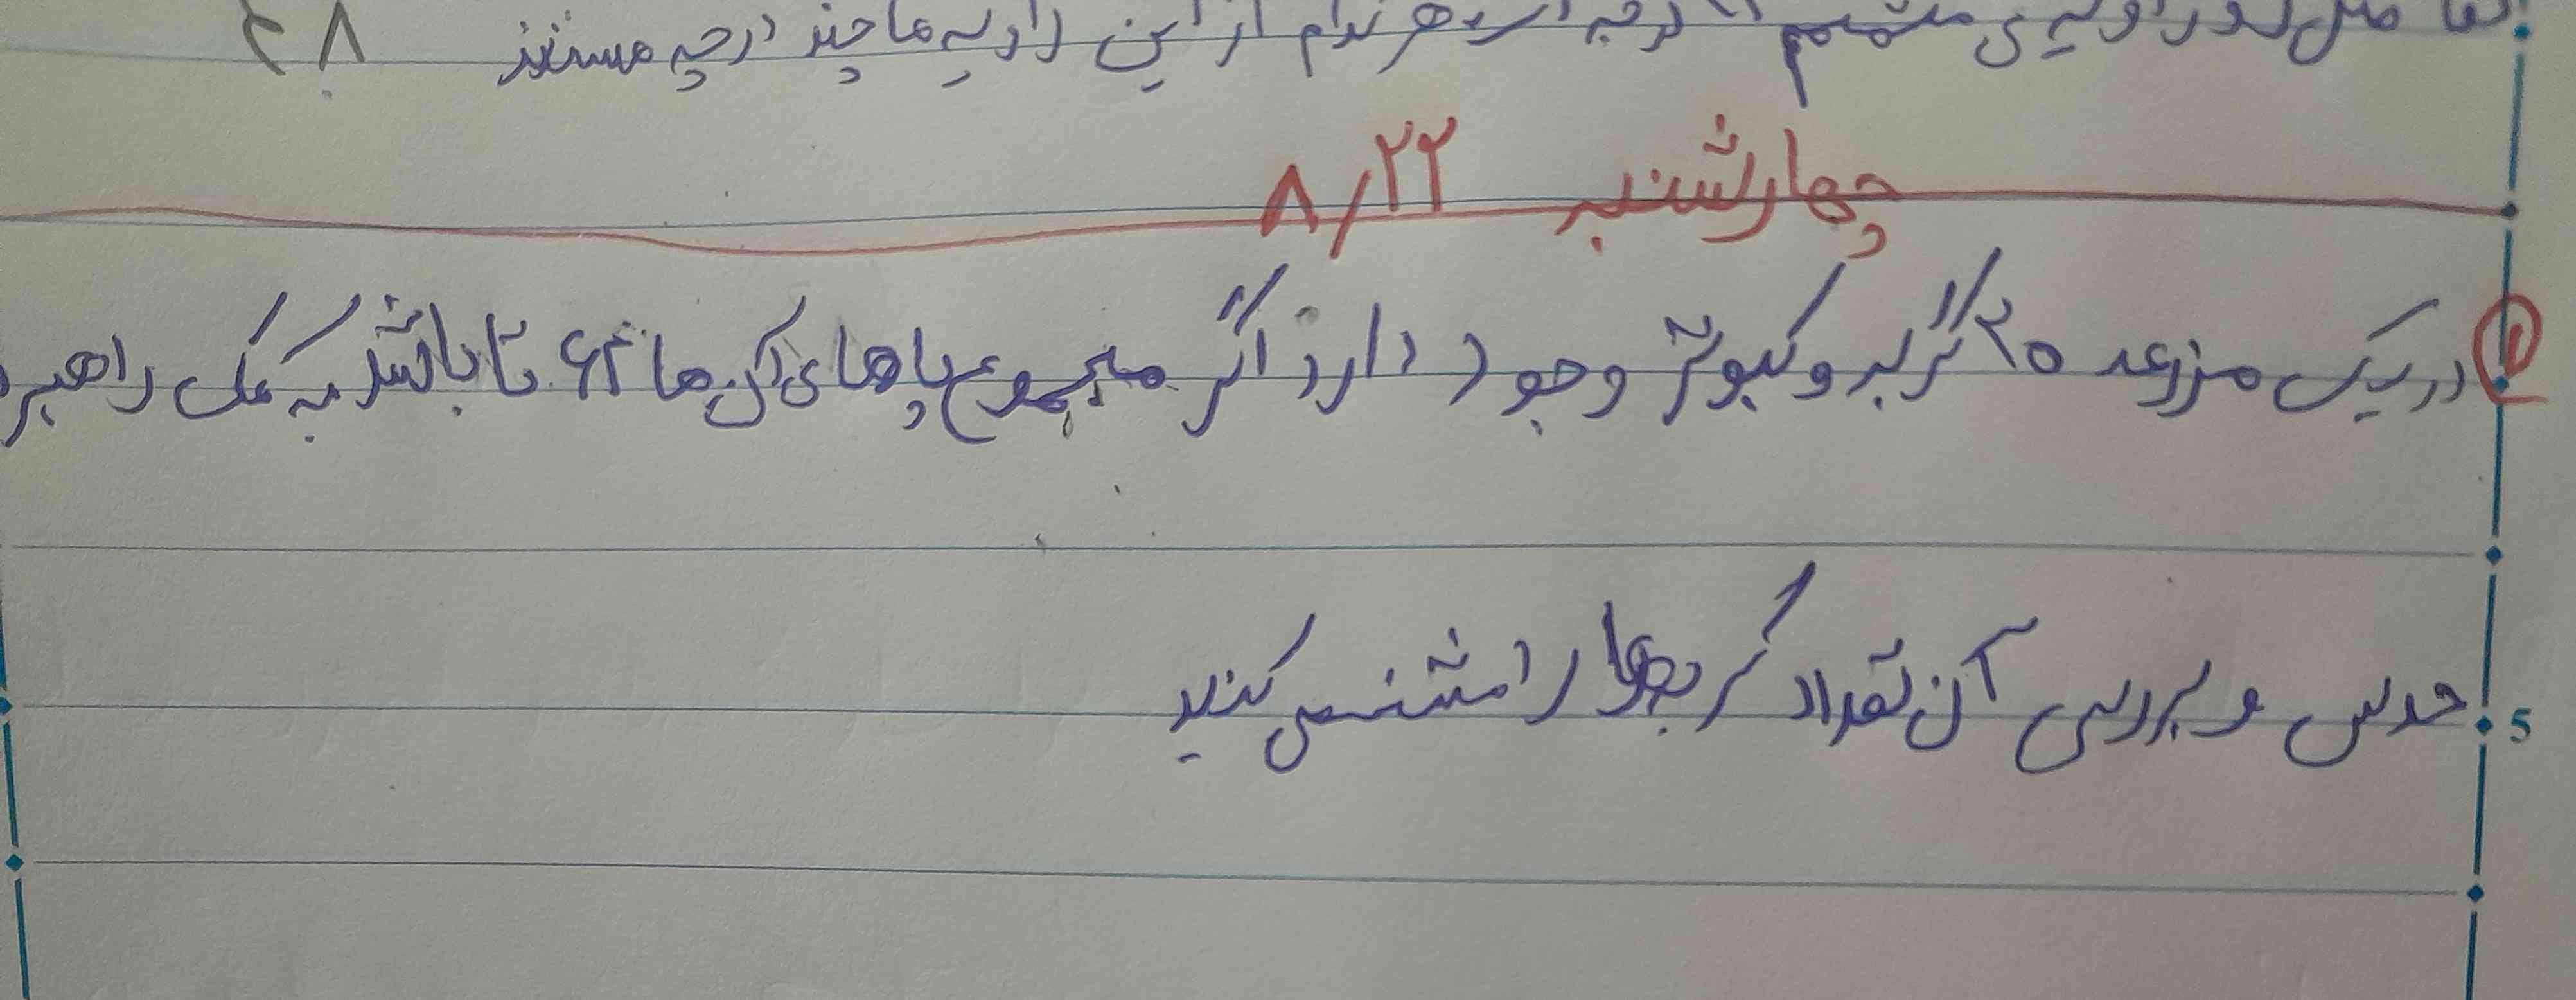 زاویه‌ی متمم درجه است هر کدام از این زاویه ها چند درجه هستند
چهارشنبه ۸/۲۲
۱ در یک مزرعه ۲۰ گربه و کبوتر وجود دارد اگر مجموع پاهای آن ها ۶۴ تا باشد به کمک راهبرد
حدس و بررسی آن تعداد گربه ها را مشخص کنید
5